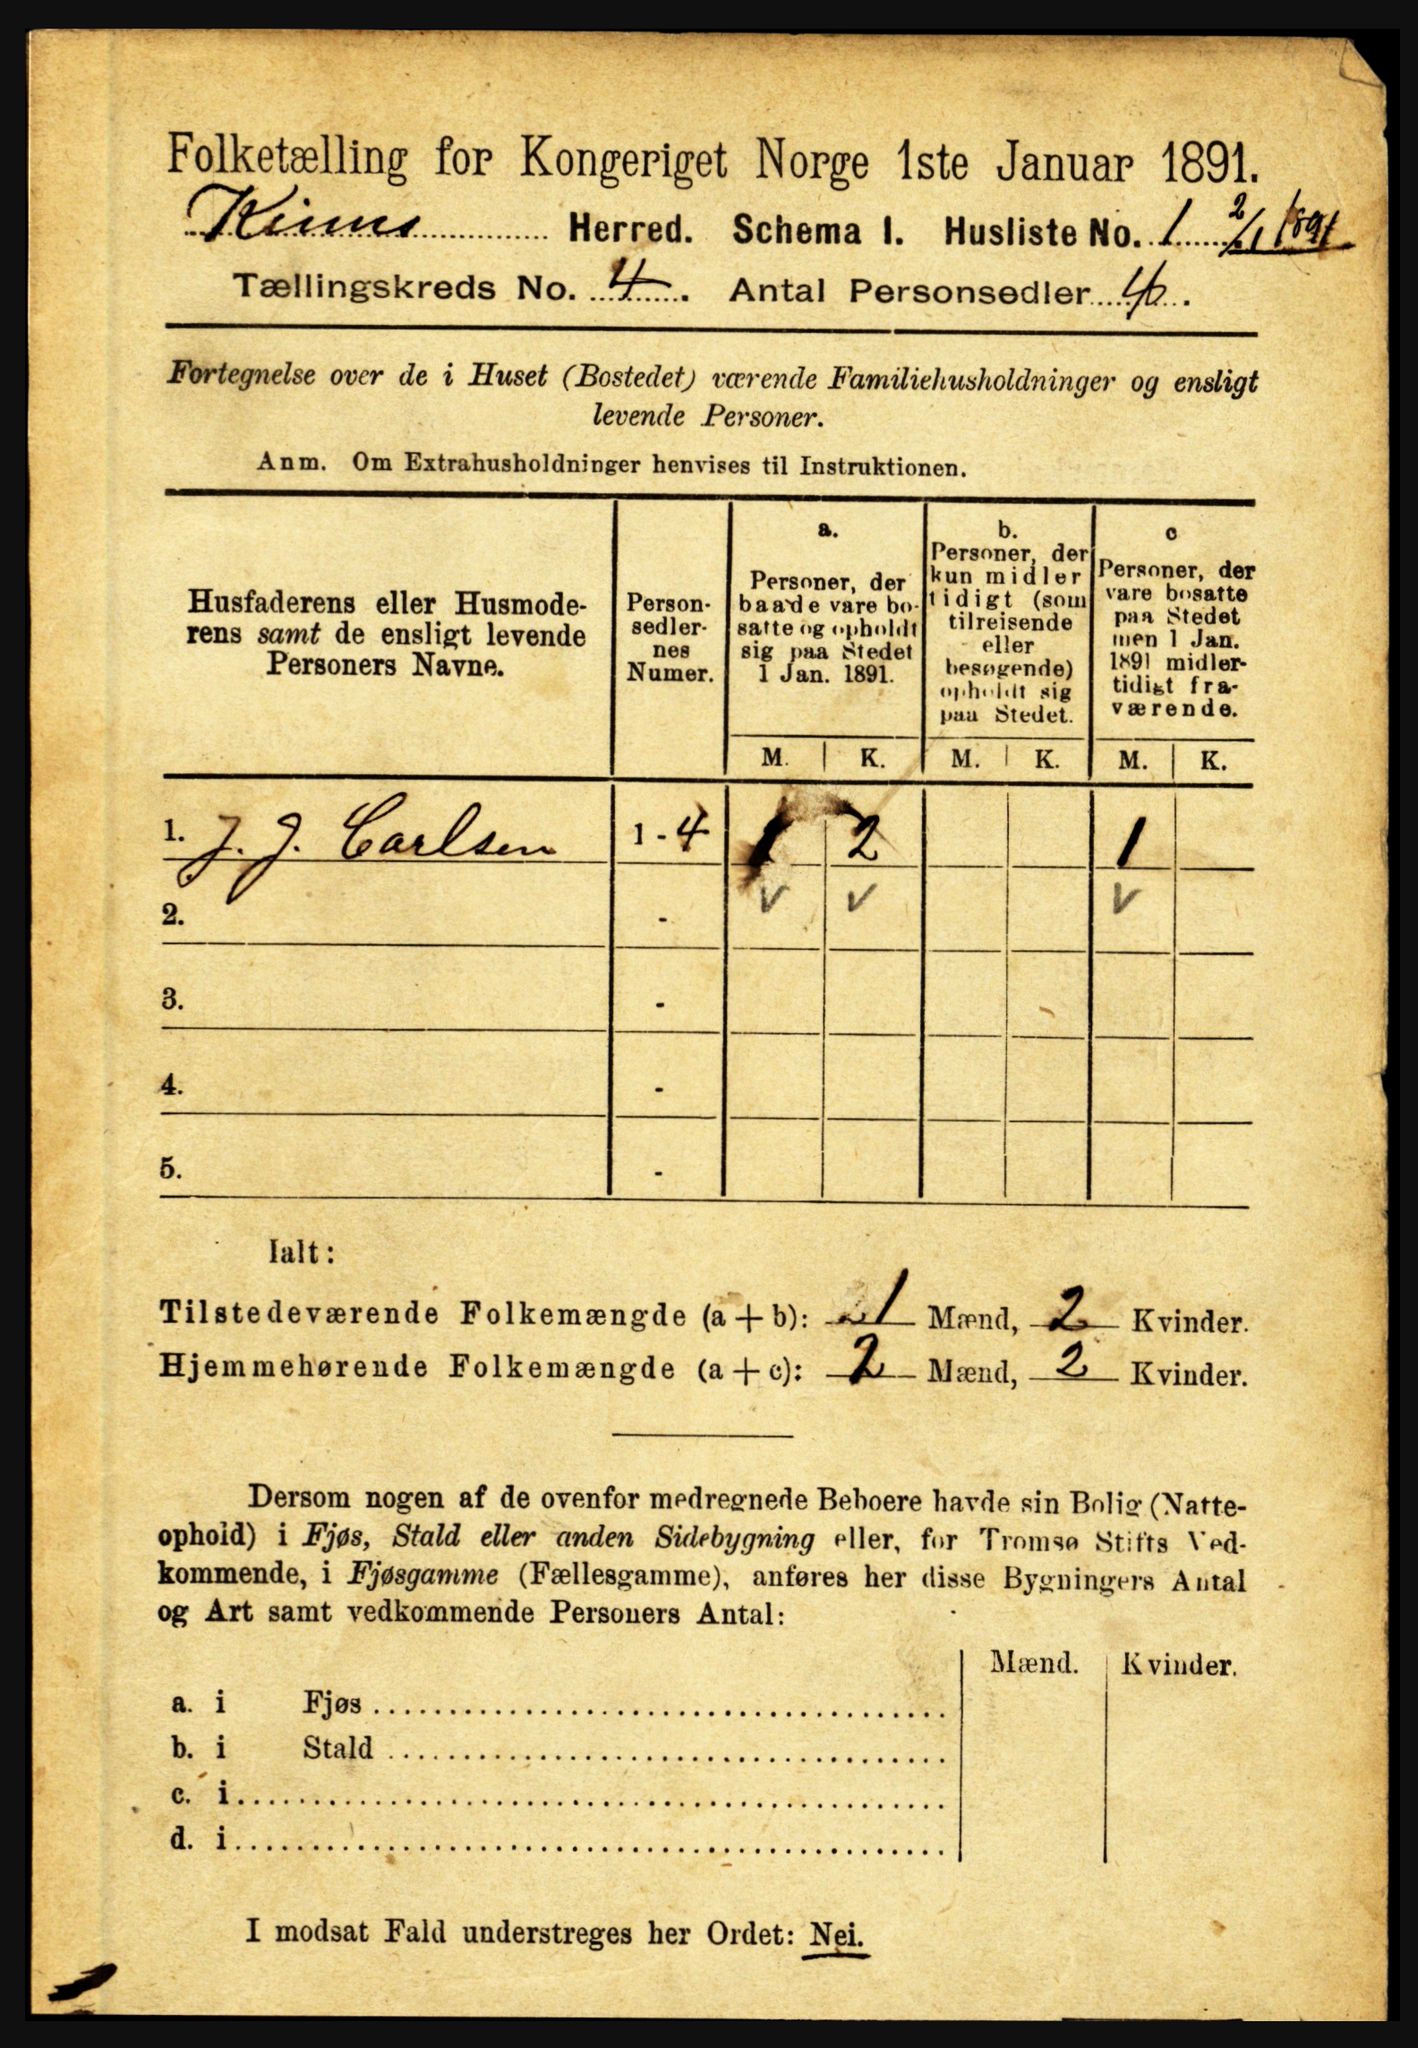 Folketælling for Kongeriget Norge 1ste Januar 1891.
Kinns Herred. Schema I. Husliste No. 1 2/1 1891
Tællingskreds No. 4. Antal Personsedler 4.
Fortegnelse over de i Huset (Bostedet) værende Familiehusholdninger og ensligt
levende Personer.
Anm. Om Extrahusholdninger henvises til Instruktionen.
Husfaderens eller Husmode-
rens samt de ensligt levende
Personers Navne.
Person-
sedler-
nes
Numer.
a.
Personer, der
baade vare bo-
satte og opholdt
sig paa Stedet
1 Jan. 1891.
b.
Personer, der
kun midler
tidigt (som
tilreisende
eller
besøgende)
opholdt sig
paa Stedet.
c
Personer, der
vare bosatte
paa Stedet
men 1 Jan.
1891 midler-
tidigt fra-
værende.
M. K. M. K. M. K.
1. J. J. Carlsen 1 - 4 1 2 1
2. - v v v
3. -
4. -
5. -
Ialt:
Tilstedeværende Folkemængde (a + b): 1 Mænd, 2 Kvinder.
Hjemmehørende Folkemængde (a + c): 2 Mænd, 2 Kvinder.
Dersom nogen af de ovenfor medregnede Beboere havde sin Bolig (Natte-
ophold) i Fjøs, Stald eller anden Sidebygning eller, for Tromsø Stifts Ved-
kommende, i Fjøsgamme (Fællesgamme), anføres her disse Bygningers Antal
og Art samt vedkommende Personers Antal:
Mænd. Kvinder.
a. i Fjøs
b. i Stald
c. i
d. i
I modsat Fald understreges her Ordet: Nei.